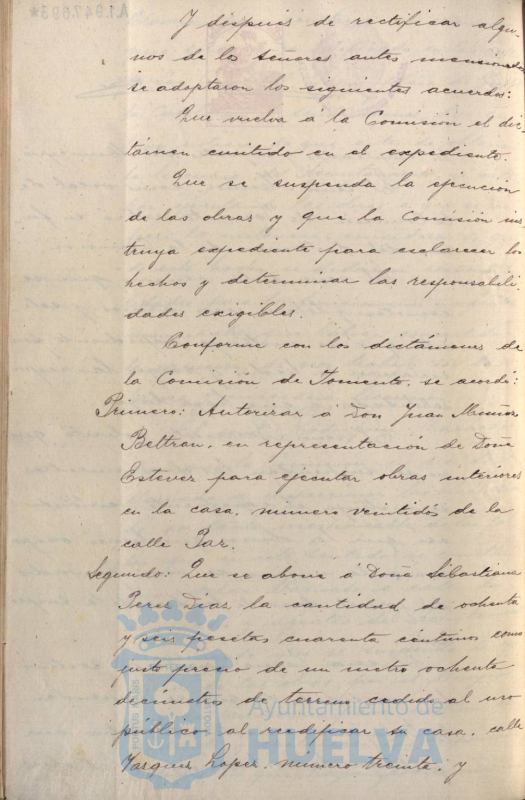 Y después de rectificar algu-
nos de los señores antes mencionados
se adoptaron los siguientes acuerdos:
Que vuelva á la Comisión el dic-
támen emitido en el expediente.
Que se suspenda la ejecución
de las obras y que la Comisión ins-
truya expediente para esclarecer los
hechos y determinar las responsabili-
dades exigibles.
Conforme con los dictámenes de
la Comisión de Fomento, se acordó:
Primero: Autorizar á Don Juan Muñoz
Beltran, en representación de Doña
Estever para ejecutar obras interiores
en la casa, número veintidós de la
calle Paz.
Segundo: Que se abone á Doña Sebastiana
Perez Diaz la cantidad de ochenta
y seis pesetas cuarenta céntimos como
justo precio de un metro ochenta
decímetros de terreno cedido al uso
público al reedificar su casa, calle
Vazquez Lopez, número treinta, y
Ayuntamiento de
HUELVA